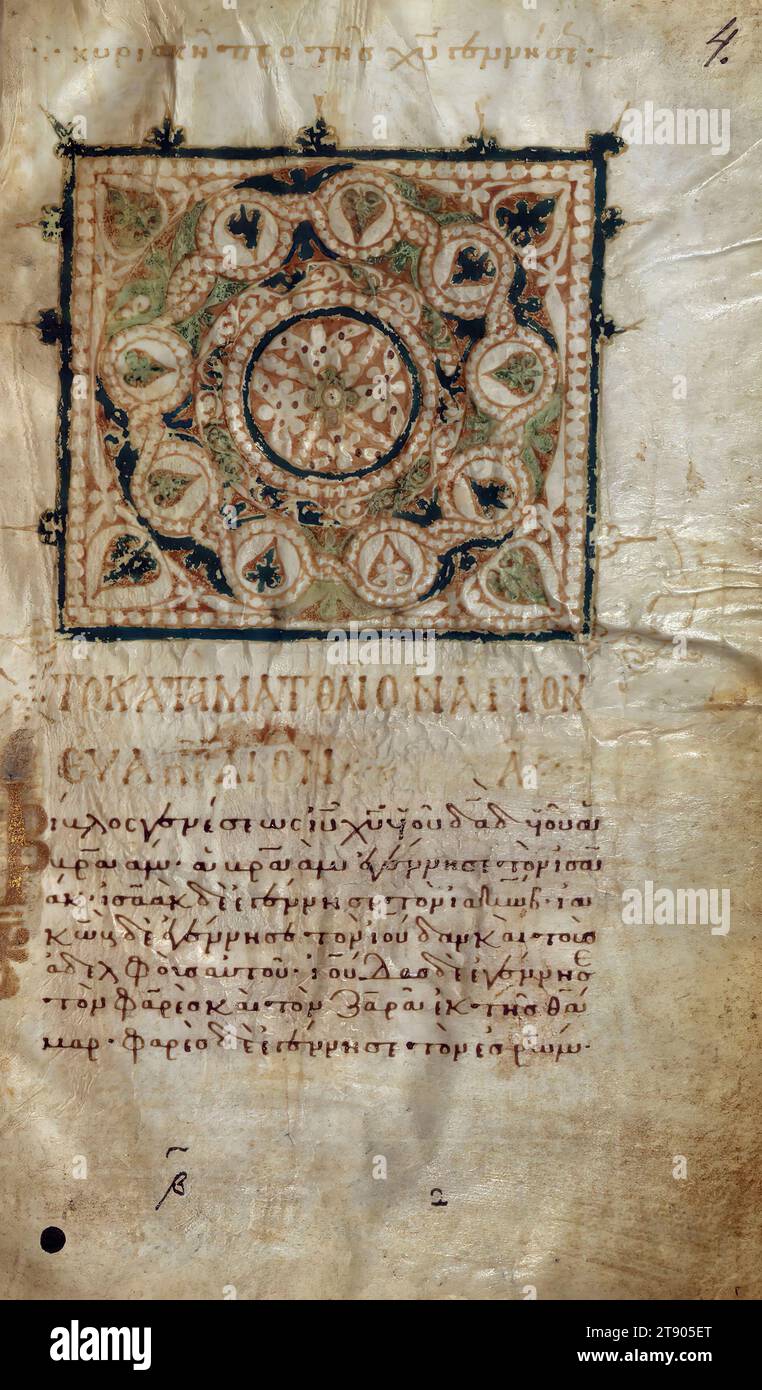 κυριακῆ πρὸ τῆς χῦ γεννήσε:
4.
ΤΟ ΚΑΤΑ ΜΑΤΘΑΙΟΝ ΑΓΙΟΝ
ΕΥΑΓΓΕΛΙΟΝ
Βίβλος γενέσεως ἰῦ χῦ υἱοῦ δαδ υἱοῦ ἀ
βραάμ · ἀβραὰμ ἐγέννησε τὸν ἰσα
άκ · ἰσαὰκ δὲ ἐγέννησε τὸν ἰακώβ · ἰα
κὼβ δὲ ἐγέννησε τὸν ἰούδαν καὶ τοὺς
ἀδελφοὺς αὐτοῦ · ἰούδας δὲ ἐγέννησε
τὸν φαρὲς καὶ τὸν ζαρὰ ἐκ τῆς θά
μαρ · φαρὲς δὲ ἐγέννησε τὸν ἐσρώμ ·
β
a
alamy
Image ID: 2T905ET
www.alamy.com